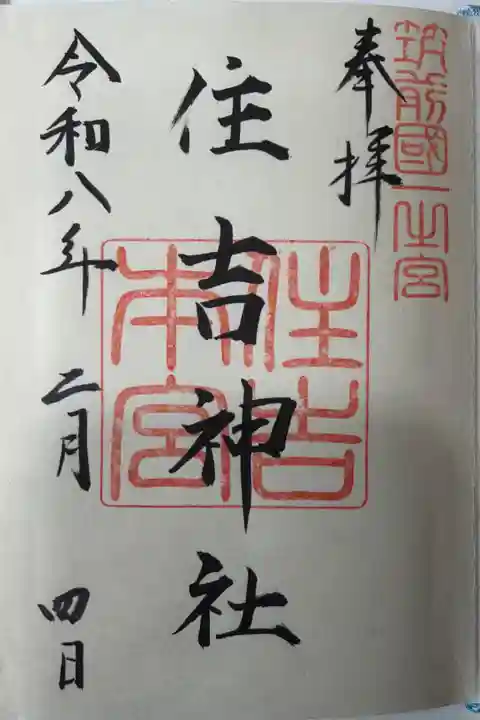 筑前國一之宮
奉拝
住吉神社
住吉
本宮
令和八年 二月 四日